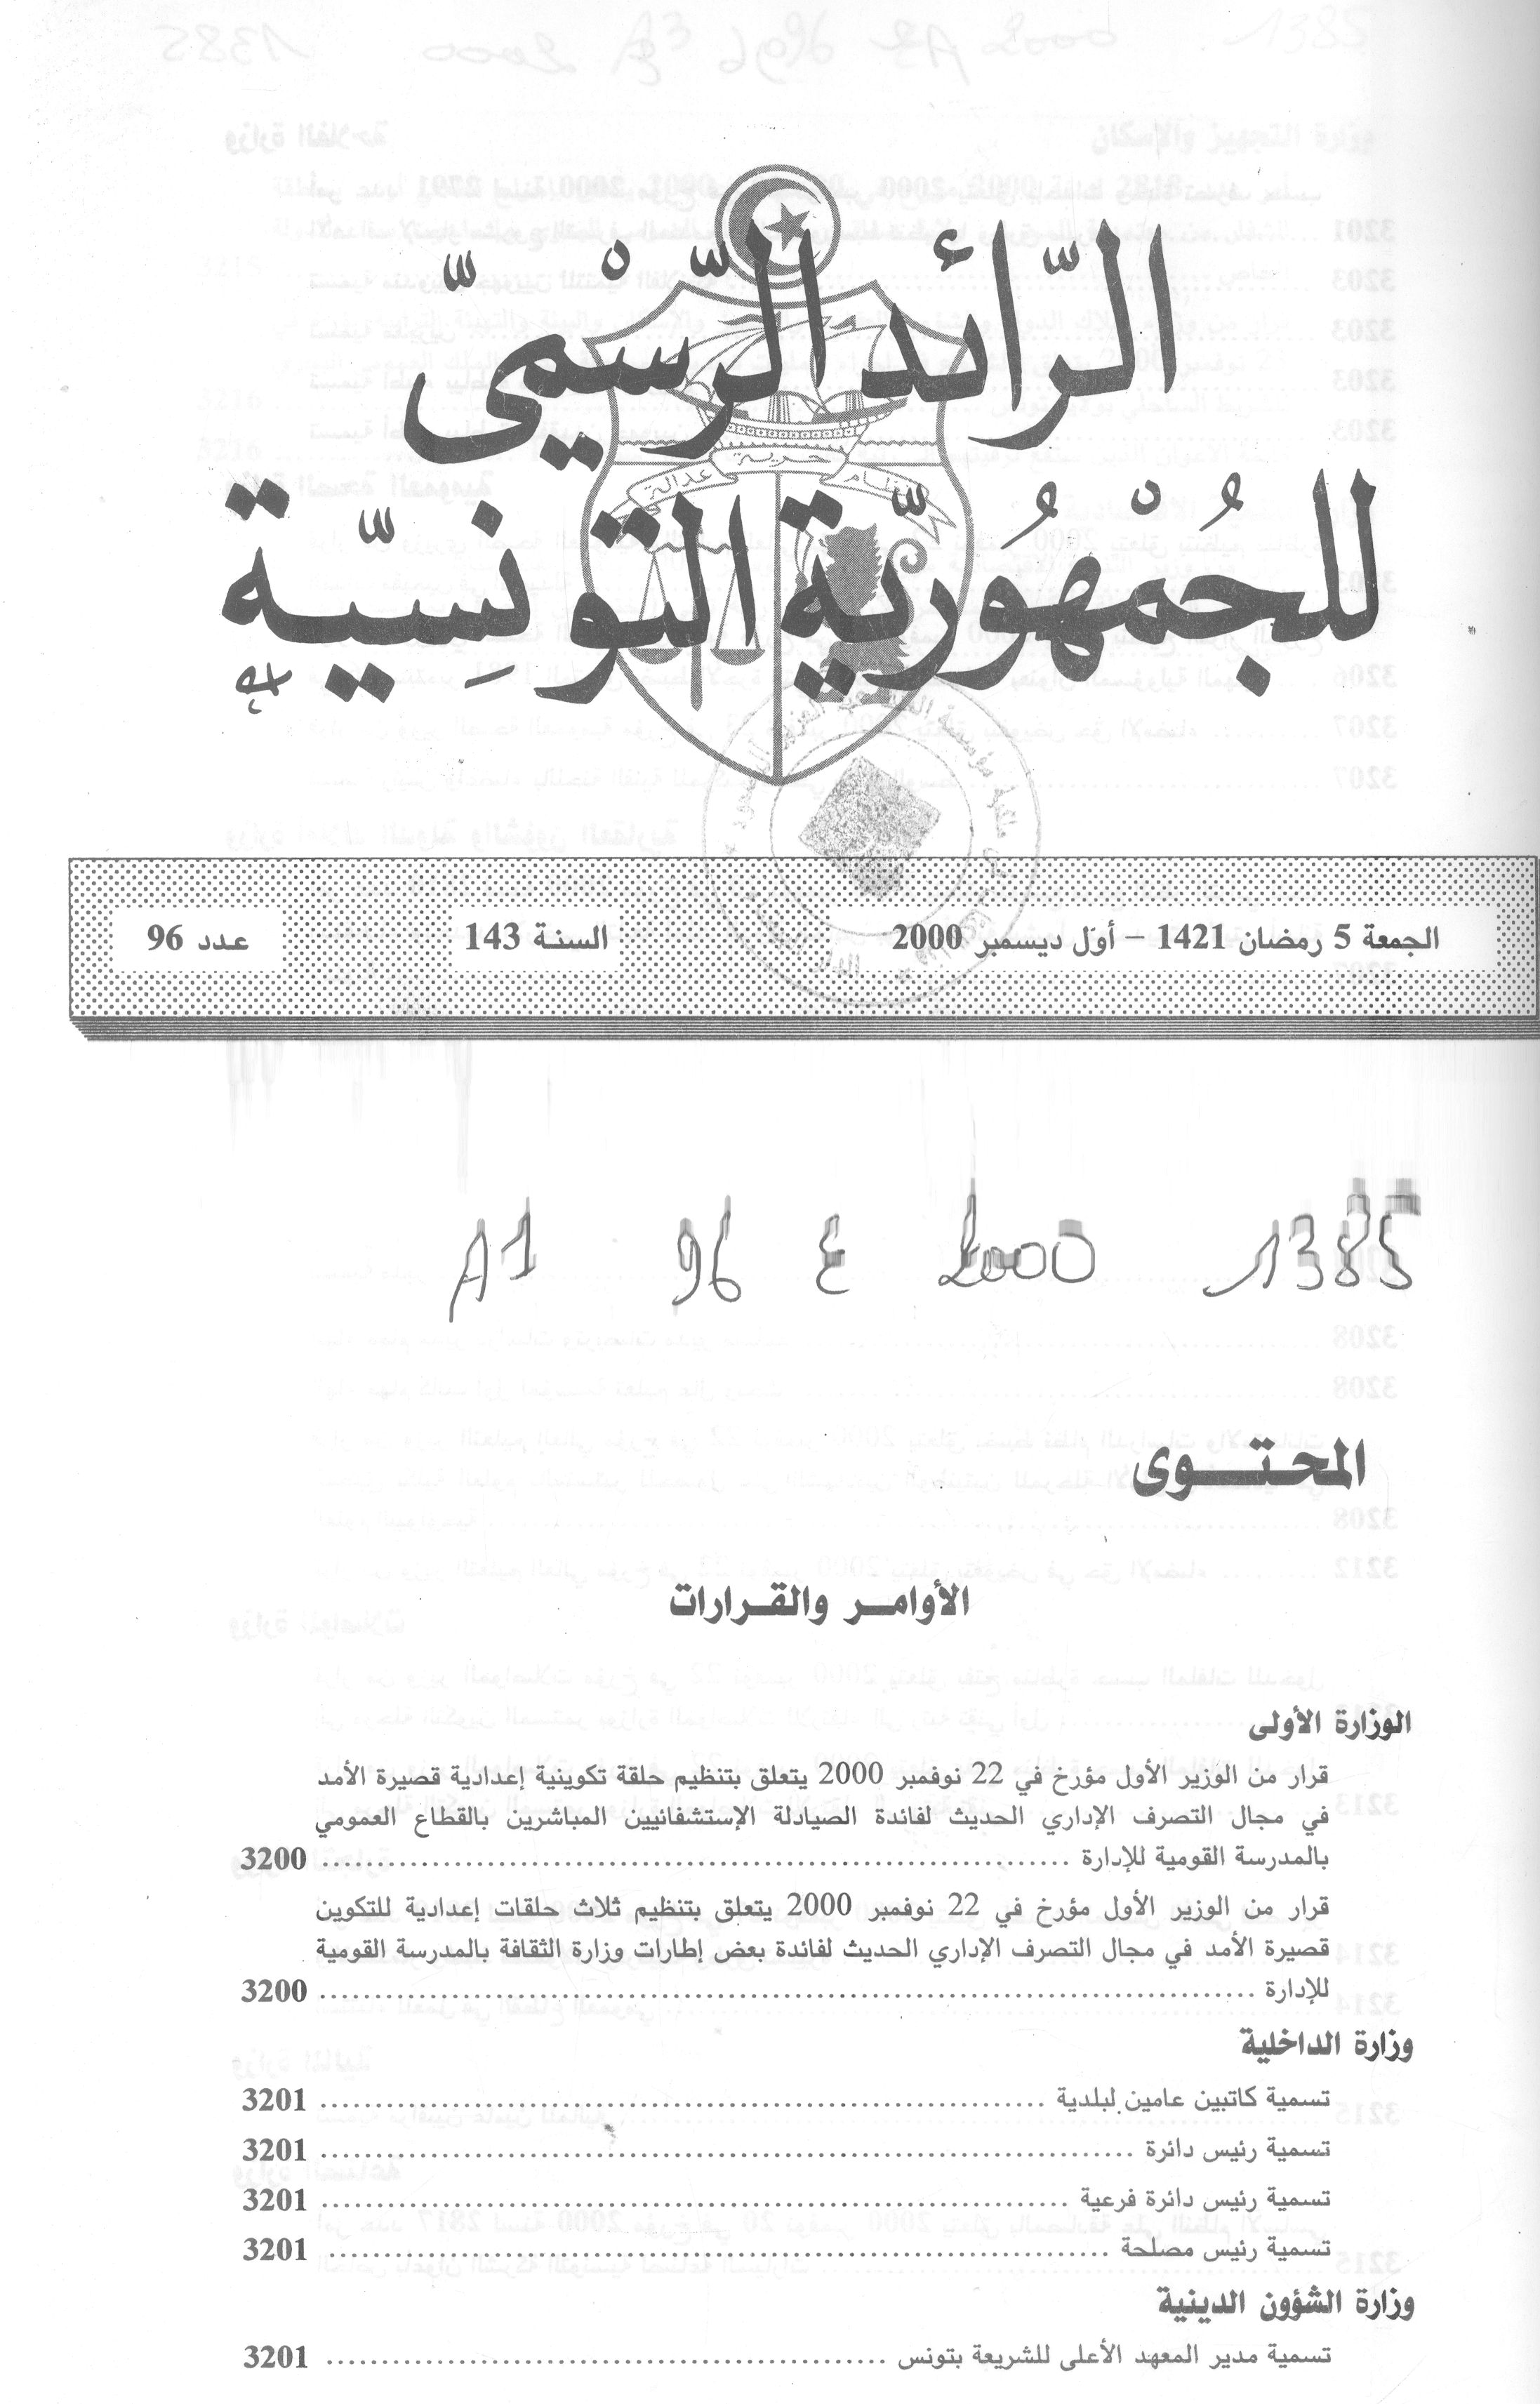 الرّائد الرّسْميّ
للجُمْهُوريّة التّونِسيّة
حرية
نظام
عدالة
الجمعة 5 رمضان 1421 – أوّل ديسمبر 2000
السنة 143
عدد 96
A1 96 ع 2000 1385
المحتوى
الأوامر والقرارات
الوزارة الأولى
قرار من الوزير الأول مؤرخ في 22 نوفمبر 2000 يتعلق بتنظيم حلقة تكوينية إعدادية قصيرة الأمد
في مجال التصرف الإداري الحديث لفائدة الصيادلة الإستشفائيين المباشرين بالقطاع العمومي
بالمدرسة القومية للإدارة ........................................ 3200
قرار من الوزير الأول مؤرخ في 22 نوفمبر 2000 يتعلق بتنظيم ثلاث حلقات إعدادية للتكوين
قصيرة الأمد في مجال التصرف الإداري الحديث لفائدة بعض إطارات وزارة الثقافة بالمدرسة القومية
للإدارة ........................................ 3200
وزارة الداخلية
تسمية كاتبين عامين لبلدية ........................................ 3201
تسمية رئيس دائرة ........................................ 3201
تسمية رئيس دائرة فرعية ........................................ 3201
تسمية رئيس مصلحة ........................................ 3201
وزارة الشؤون الدينية
تسمية مدير المعهد الأعلى للشريعة بتونس ........................................ 3201